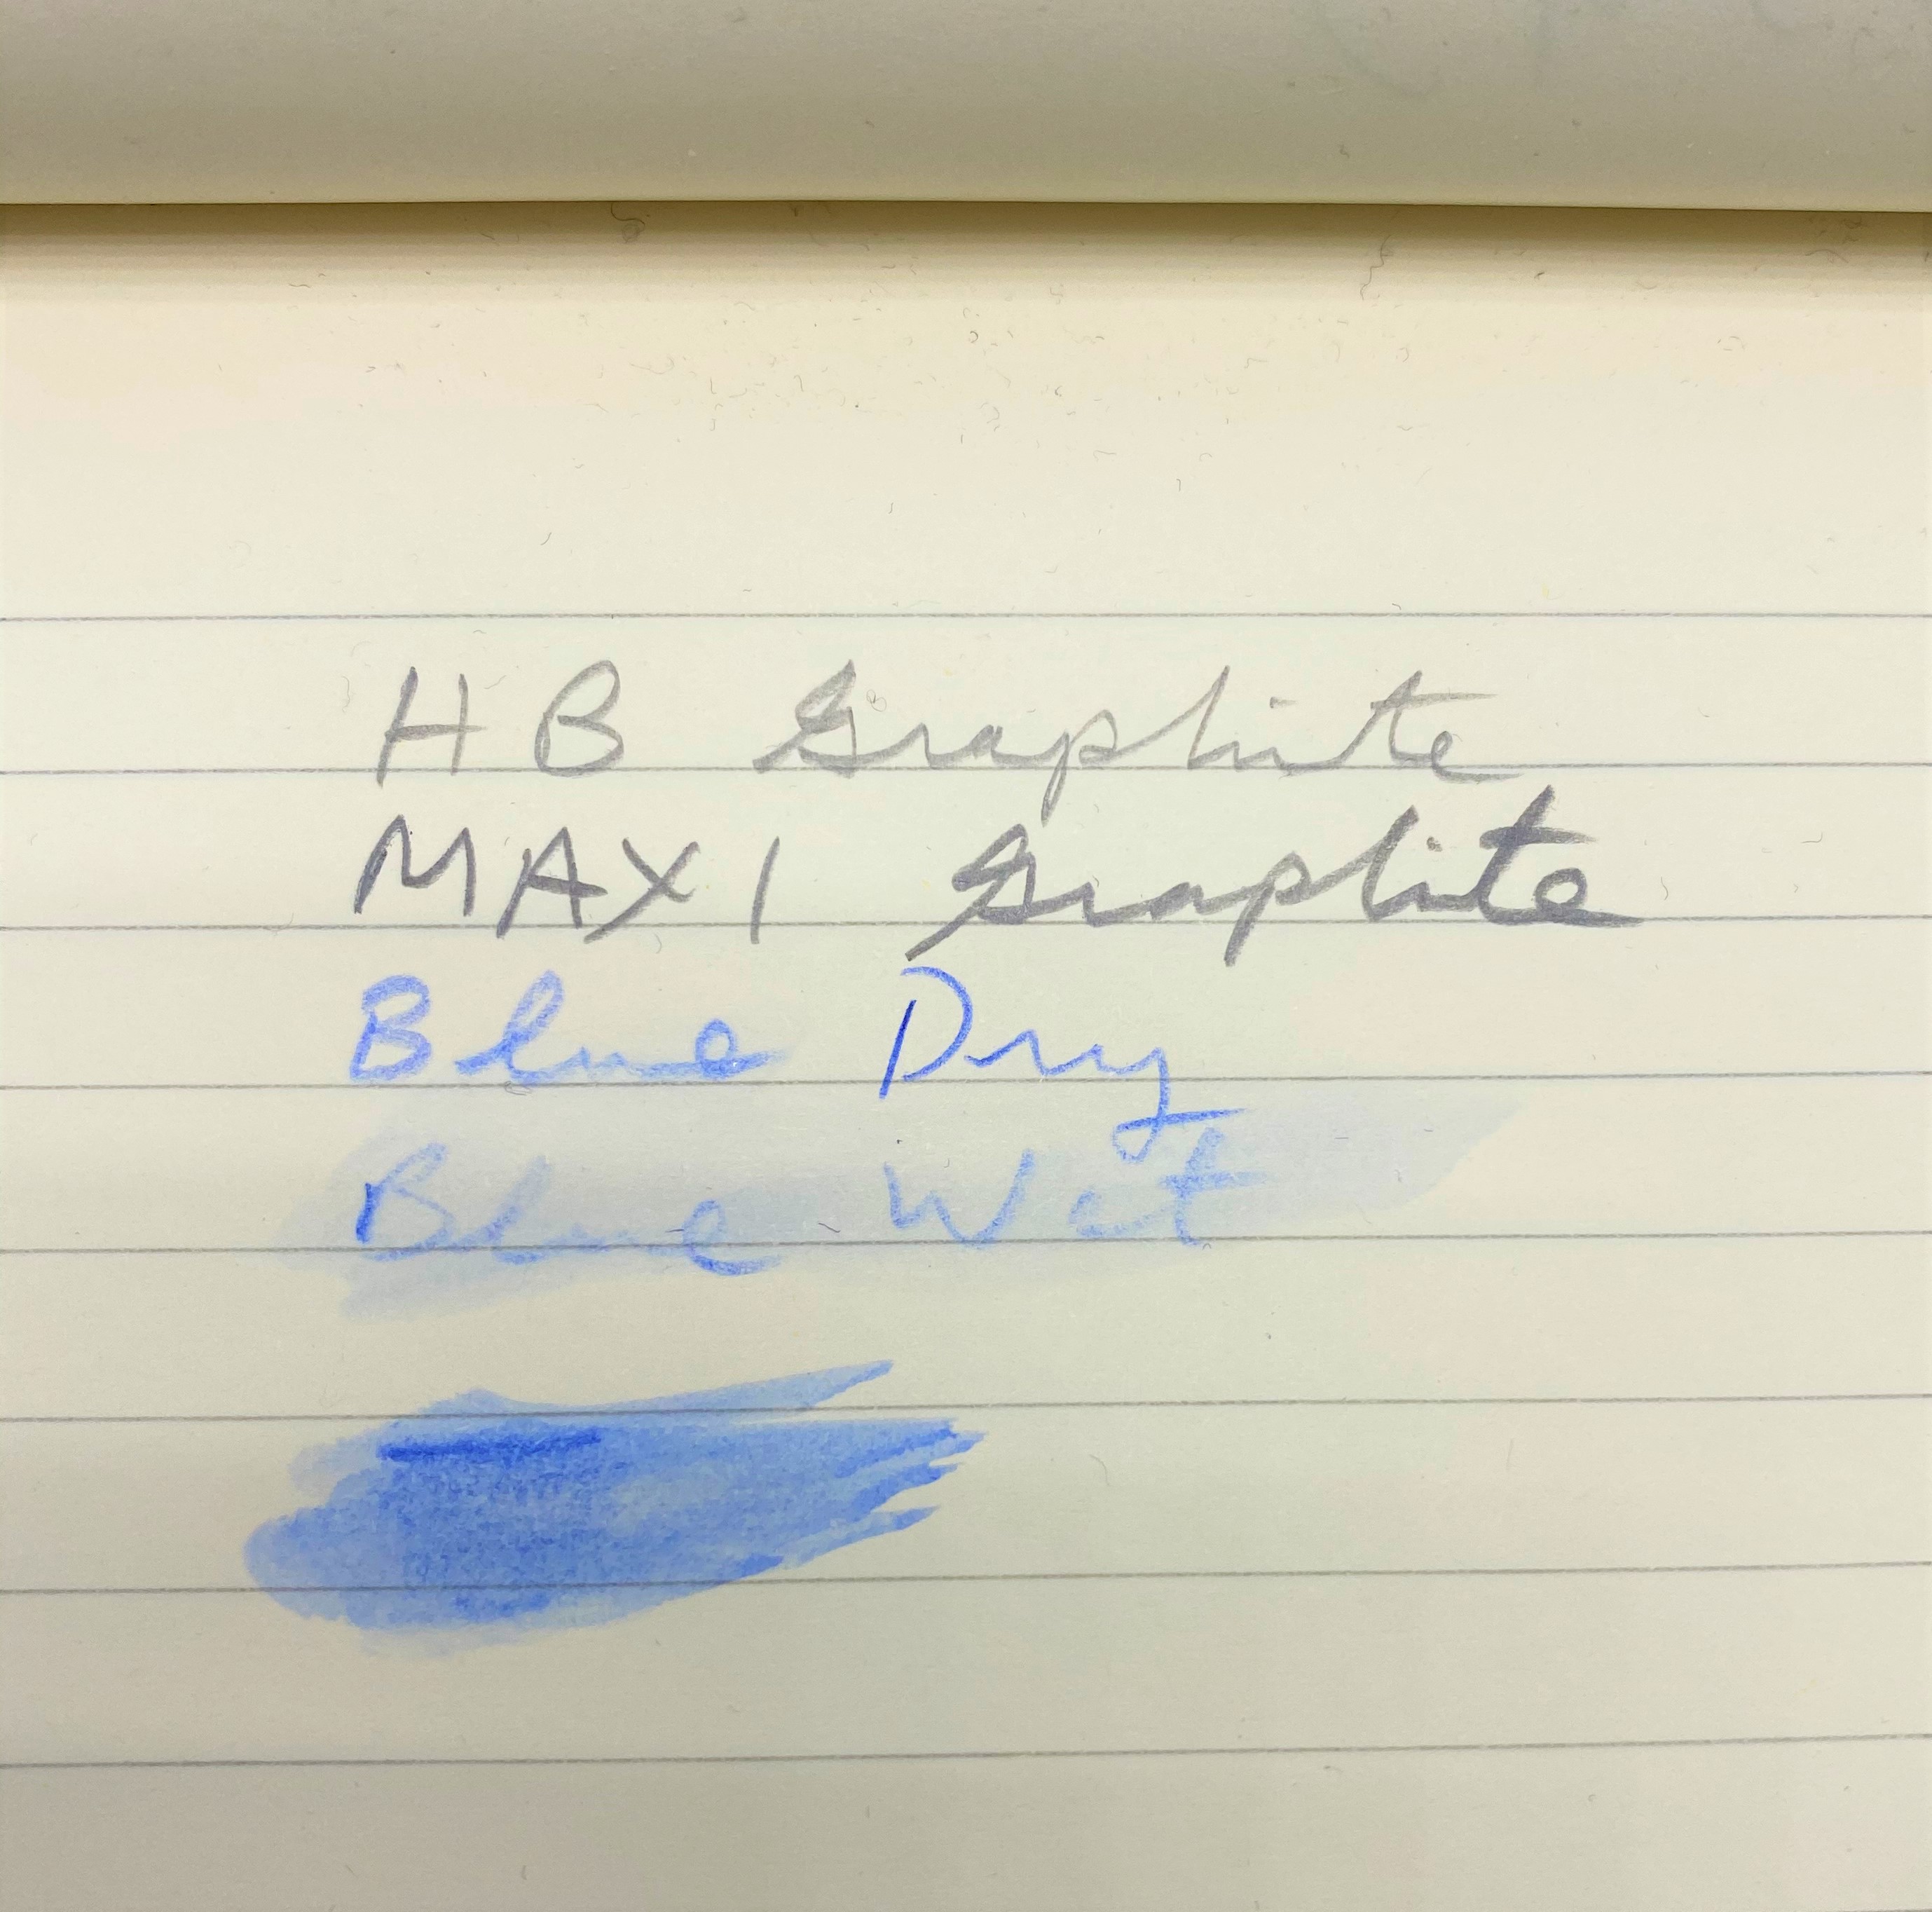 HB Graphite
MAXI Graphite
Blue Dry
Blue Wet